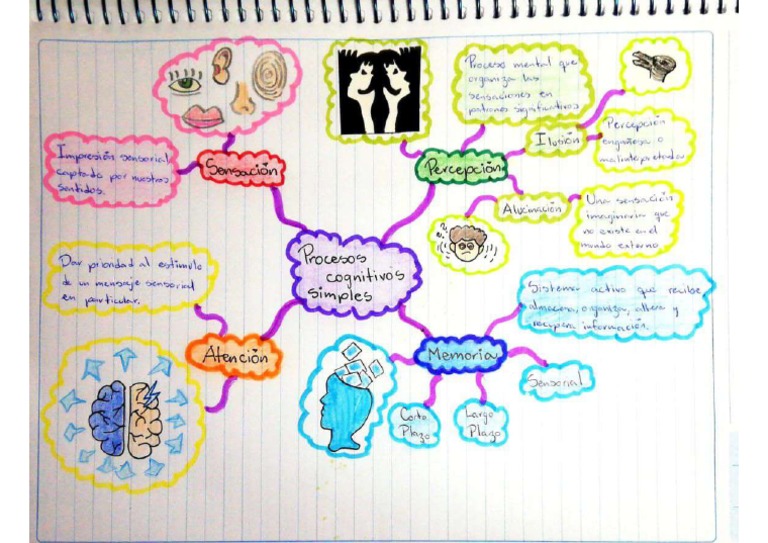 Procesos
cognitivos
simples
Sensación
Impresión sensorial
captada por nuestros
sentidos.
Percepción
Proceso mental que
organiza las
sensaciones en
patrones significativos
Ilusión
Percepción
engañosa o
malinterpretada
Alucinación
Una sensación
imaginaria que
no existe en el
mundo externo
Atención
Dar prioridad al estimulo
de un mensaje sensorial
en particular.
Memoria
Sistema activo que recibe
almacena, organiza, altera y
recupera información.
Sensorial
Corto
Plazo
Largo
Plazo